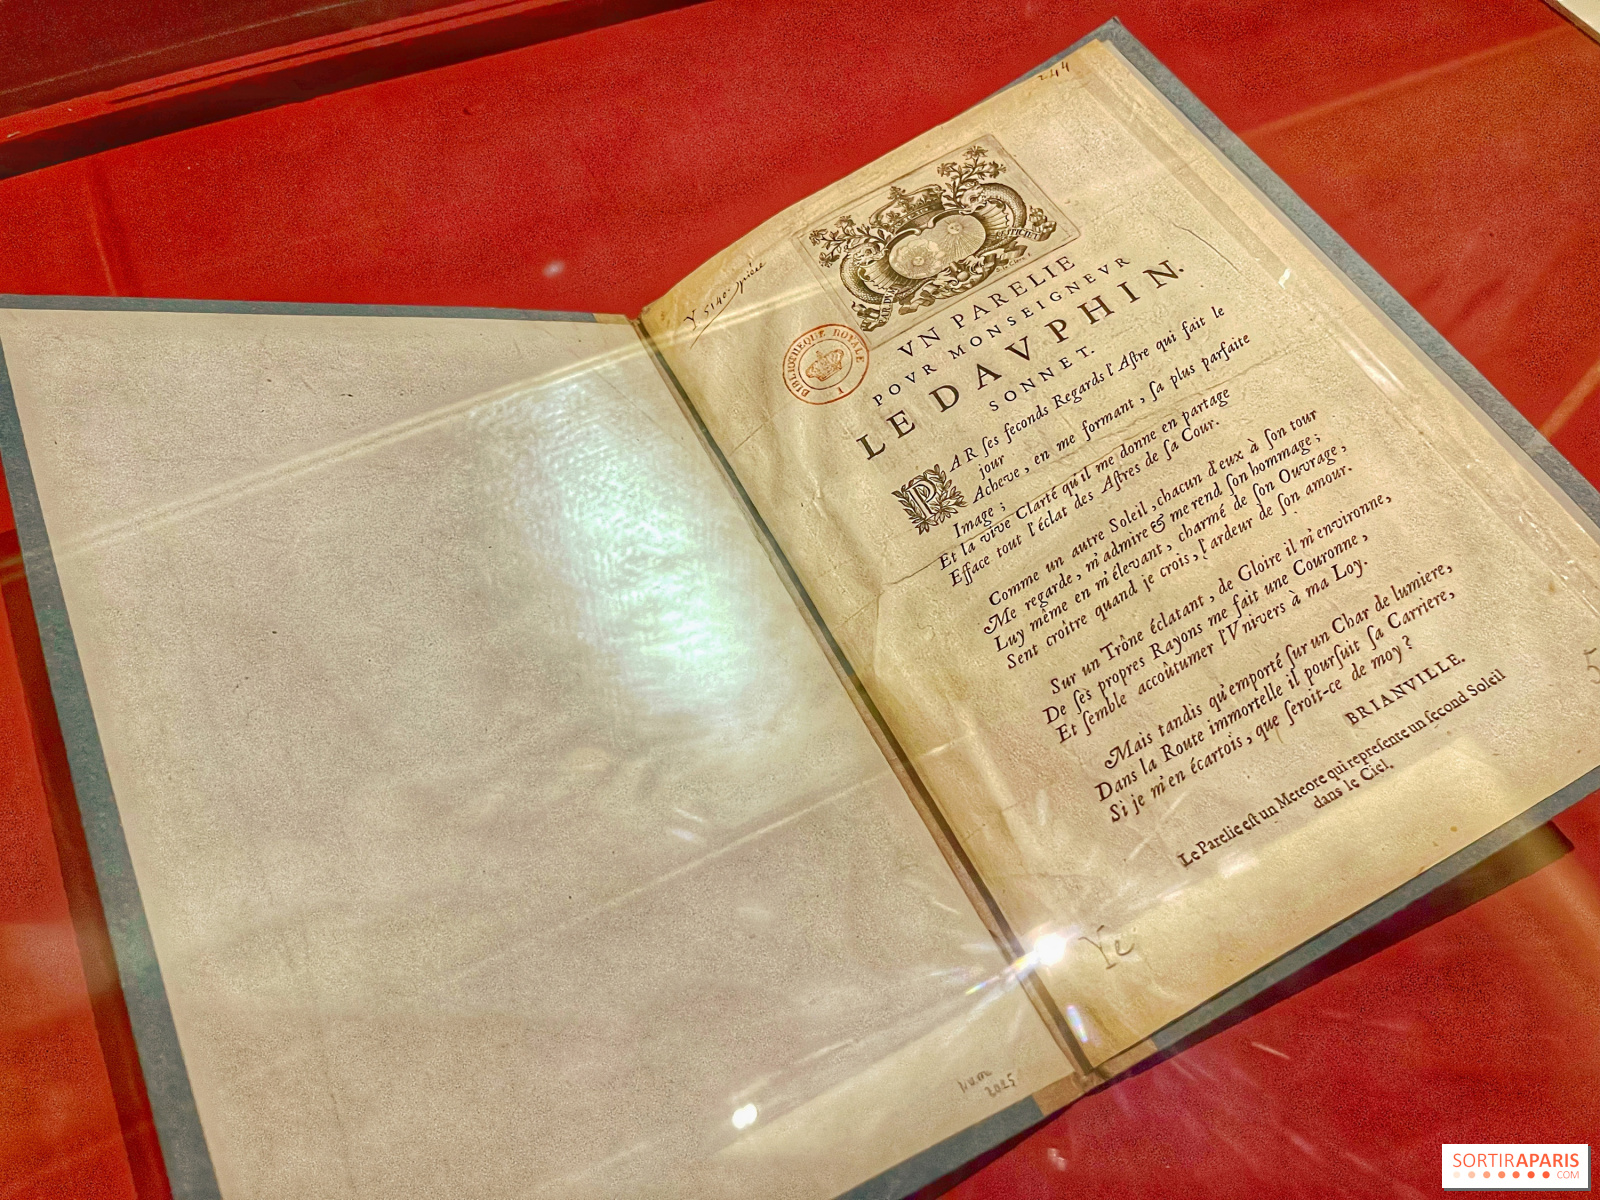 244
Y 5140. pièce
BIBLIOTHEQUE ROYALE
VN PARELIE
POVR MONSEIGNEVR
LE DAVPHIN.
SONNET.
PAR ſes ſeconds Regards l'Aſtre qui fait le
jour
Acheve, en me formant, ſa plus parfaite
Image;
Et la vive Clarté qu'il me donne en partage
Efface tout l'éclat des Aſtres de ſa Cour.
Comme un autre Soleil, chacun d'eux à ſon tour
Me regarde, m'admire & me rend ſon hommage;
Luy même en m'élevant, charmé de ſon Ouvrage,
Sent croître quand je crois, l'ardeur de ſon amour.
Sur un Trône éclatant, de Gloire il m'environne,
De ſes propres Rayons me fait une Couronne,
Et ſemble accoûtumer l'Vnivers à ma Loy.
Mais tandis qu'emporté ſur un Char de lumiere,
Dans la Route immortelle il pourſuit ſa Carriere,
Si je m'en écartois, que ſeroit-ce de moy?
BRIANVILLE.
Le Parelie eſt un Meteore qui repreſente un ſecond Soleil
dans le Ciel.
Ye
num
2025
5
SORTIRAPARIS
.COM